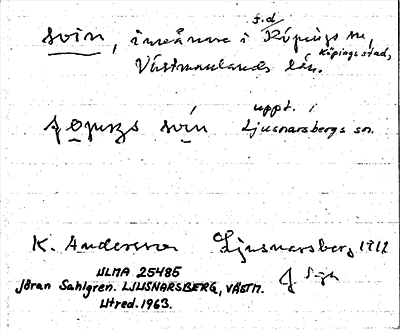 svin, inneånare i f.d Köpings sn,
Köpings stad,
Västmanlands län.
uppt. i
svin Ljusnarsbergs sn.
K. Andersson Ljusnarsberg 1912
ULMA 25485
Jöran Sahlgren. LJUSNARSBERG, VÄSTM.
Utred. 1963.